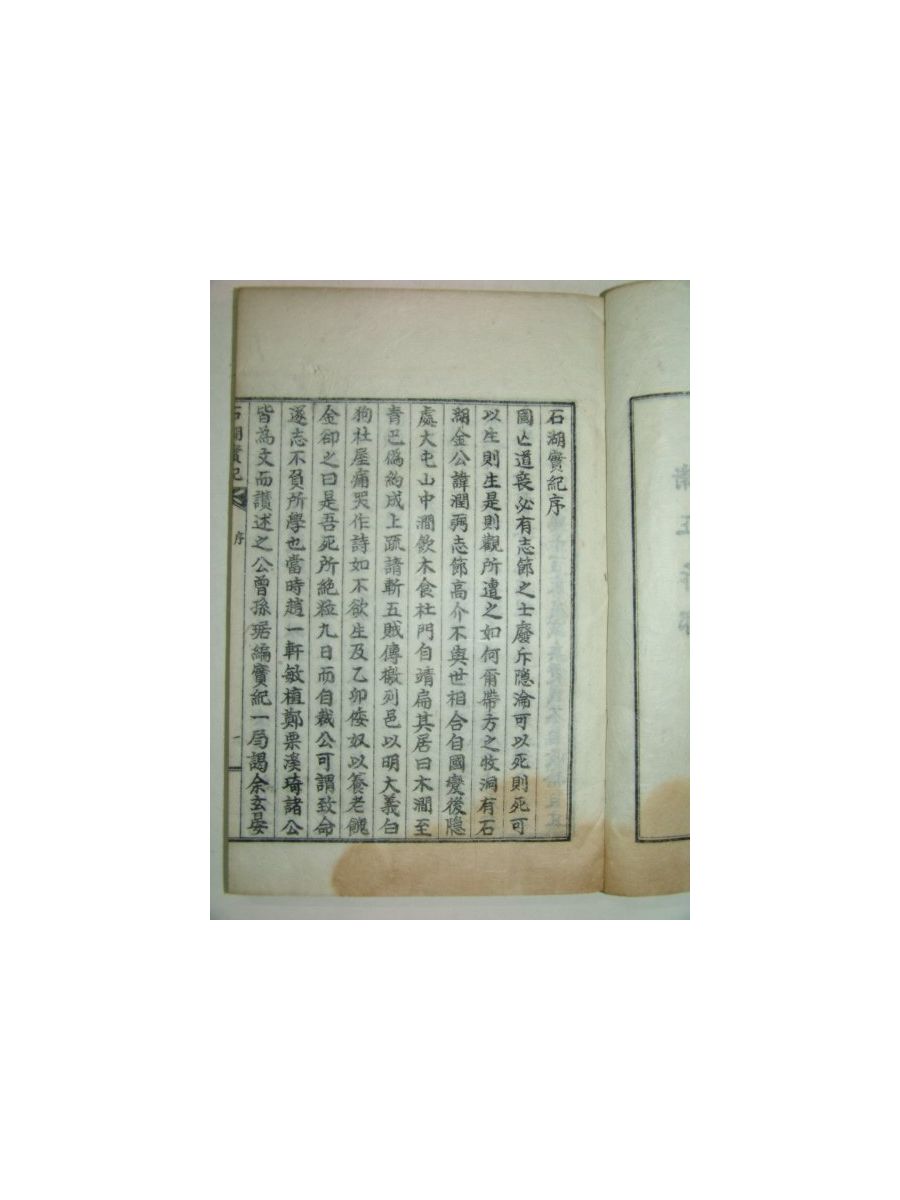 石湖實紀序
國亡道喪必有志節之士廢斥隱淪可以死則死可
以生則生是則觀所遭之如何爾帶方之牧洞有石
湖金公諱潤弼志節高介不與世相合自國變後隱
處大屯山中澗飮木食杜門自靖扁其居曰木澗至
靑巴僞約成上疏請斬五賊傳檄列邑以明大義白
狗社屋痛哭作詩如不欲生及乙卯倭奴以養老餽
金卻之曰是吾死所絶粒九日而自裁公可謂致命
遂志不負所學也當時趙一軒敏植鄭栗溪琦諸公
皆為文而讚述之公曾孫琚編實紀一局謁余玄晏
石湖實紀 序 一